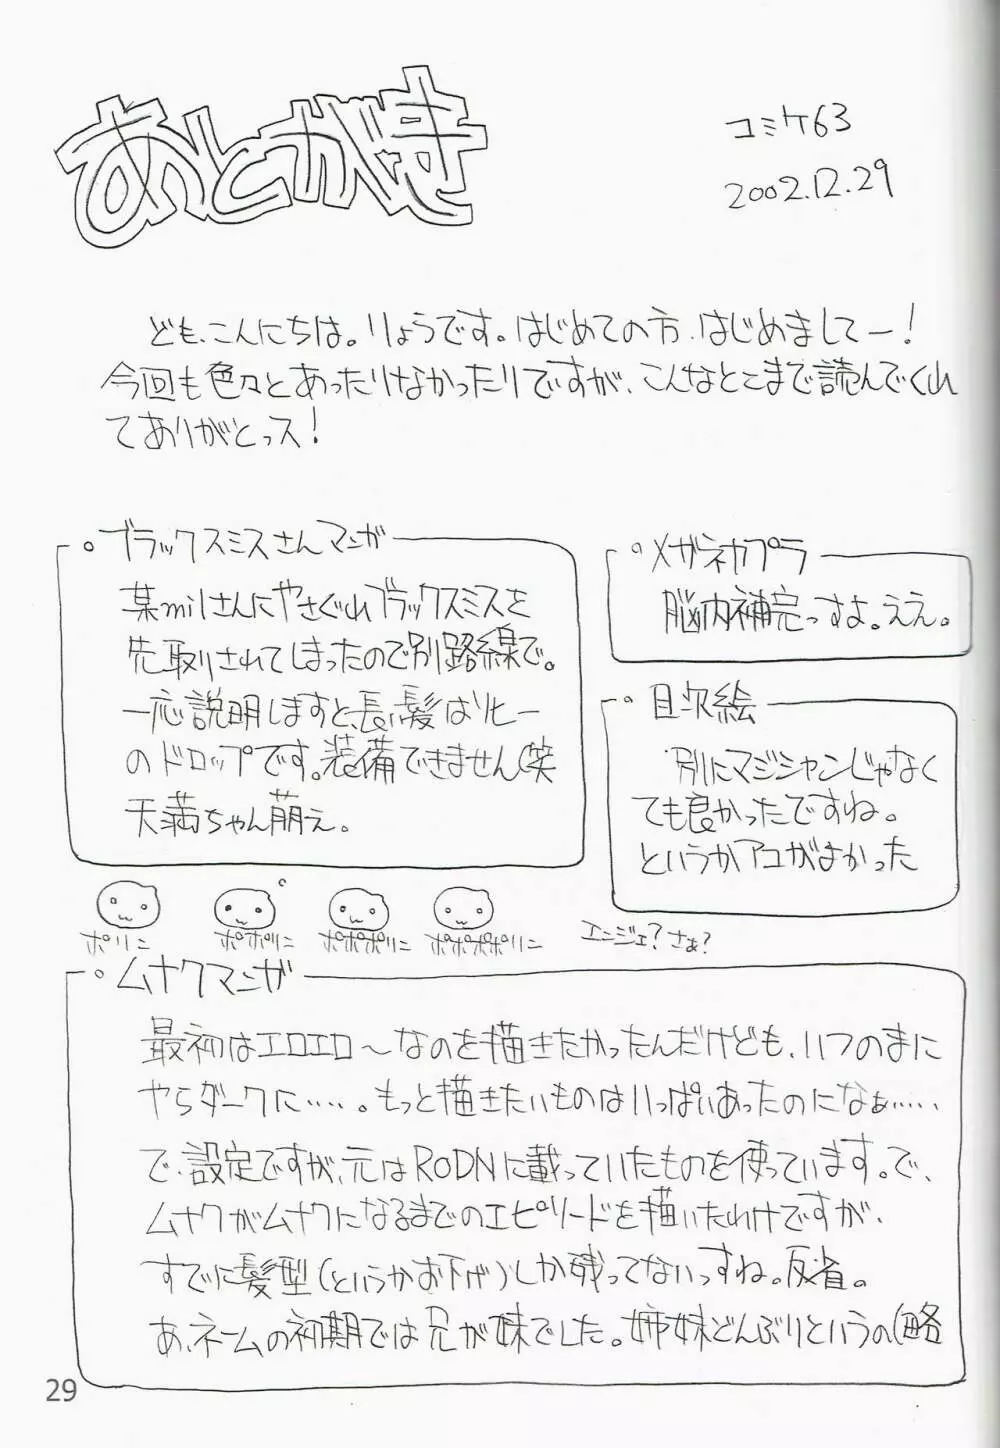 あとがき
コミケ63
2002.12.29
ども、こんにちは。りょうです。はじめての方、はじめましてー！
今回も色々とあったりなかったりですが、こんなとこまで読んでくれ
てありがとっス！
。ブラックスミスさんマンガ
某milさんにやさぐれブラックスミスを
先取りされてしまったので別路線で。
一応説明しますと、長い髪はソヒー
のドロップです。装備できません(笑
天満ちゃん萌え。
。メガネカプラ
脳内補完っすよ。ええ。
。目次絵
別にマジシャンじゃなく
ても良かったですね。
というかアコがよかった
ポリン
ポポリン
ポポポリン
ポポポポリン
エンジェ？さぁ？
。ムナクマンガ
最初はエロエロ〜なのを描きたかったんだけども、いつのまに
やらダークに……。もっと描きたいものはいっぱいあったのになぁ……
で、設定ですが、元はRODNに載っていたものを使っています。で、
ムナクがムナクになるまでのエピソードを描いたわけですが、
すでに髪型(というかお下げ)しか残ってないっすね。反省。
あ、ネームの初期では兄が妹でした。姉妹どんぶりというの(略
29